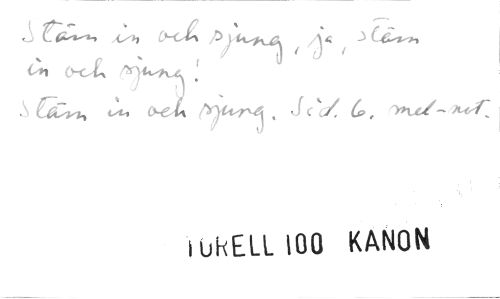 Stäm in och sjung, ja, stäm
in och sjung!
Stäm in och sjung. Sid. 6. mel-not.
TORELL 100 KANON